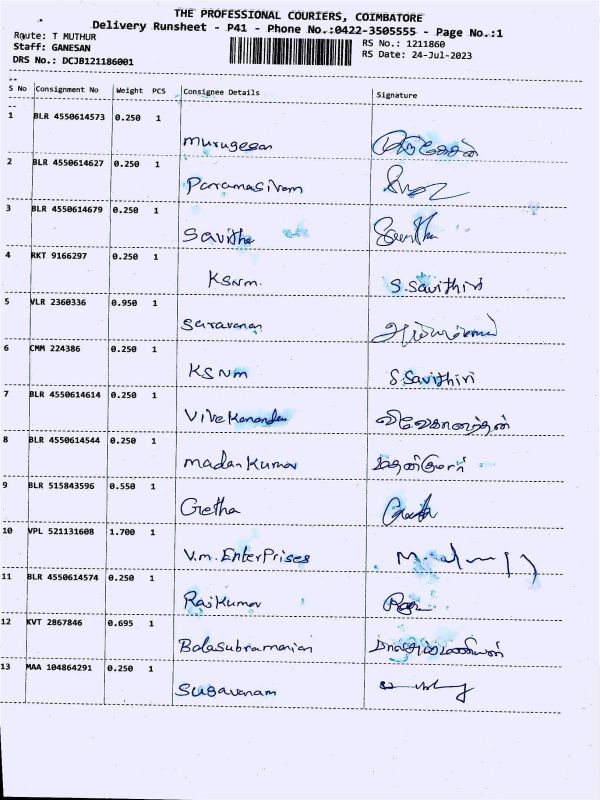 THE PROFESSIONAL COURIERS, COIMBATORE
Delivery Runsheet - P41 - Phone No.:0422-3505555 - Page No.:1
Route: T MUTHUR RS No.: 1211860
Staff: GANESAN RS Date: 24-Jul-2023
DRS No.: DCJB121186001
S No Consignment No Weight PCS Consignee Details Signature
1 BLR 4550614573 0.250 1
Murugesan முருகேசன்
2 BLR 4550614627 0.250 1
Paramasivam
3 BLR 4550614679 0.250 1
Savitha
4 RKT 9166297 0.250 1
KSNM. S.Savithiri
5 VLR 2360336 0.950 1
Saravanan
6 CMM 224386 0.250 1
KSNM S.Savithiri
7 BLR 4550614614 0.250 1
Vivekanandan விவேகானந்தன்
8 BLR 4550614544 0.250 1
Madan Kumar மதன்குமார்
9 BLR 515843596 0.550 1
Geetha
10 VPL 521131608 1.700 1
V.M. Enterprises
11 BLR 4550614574 0.250 1
Raj Kumar
12 KVT 2867846 0.695 1
Balasubramanian பாலசுப்ரமணியன்
13 MAA 104864291 0.250 1
Sugavanam